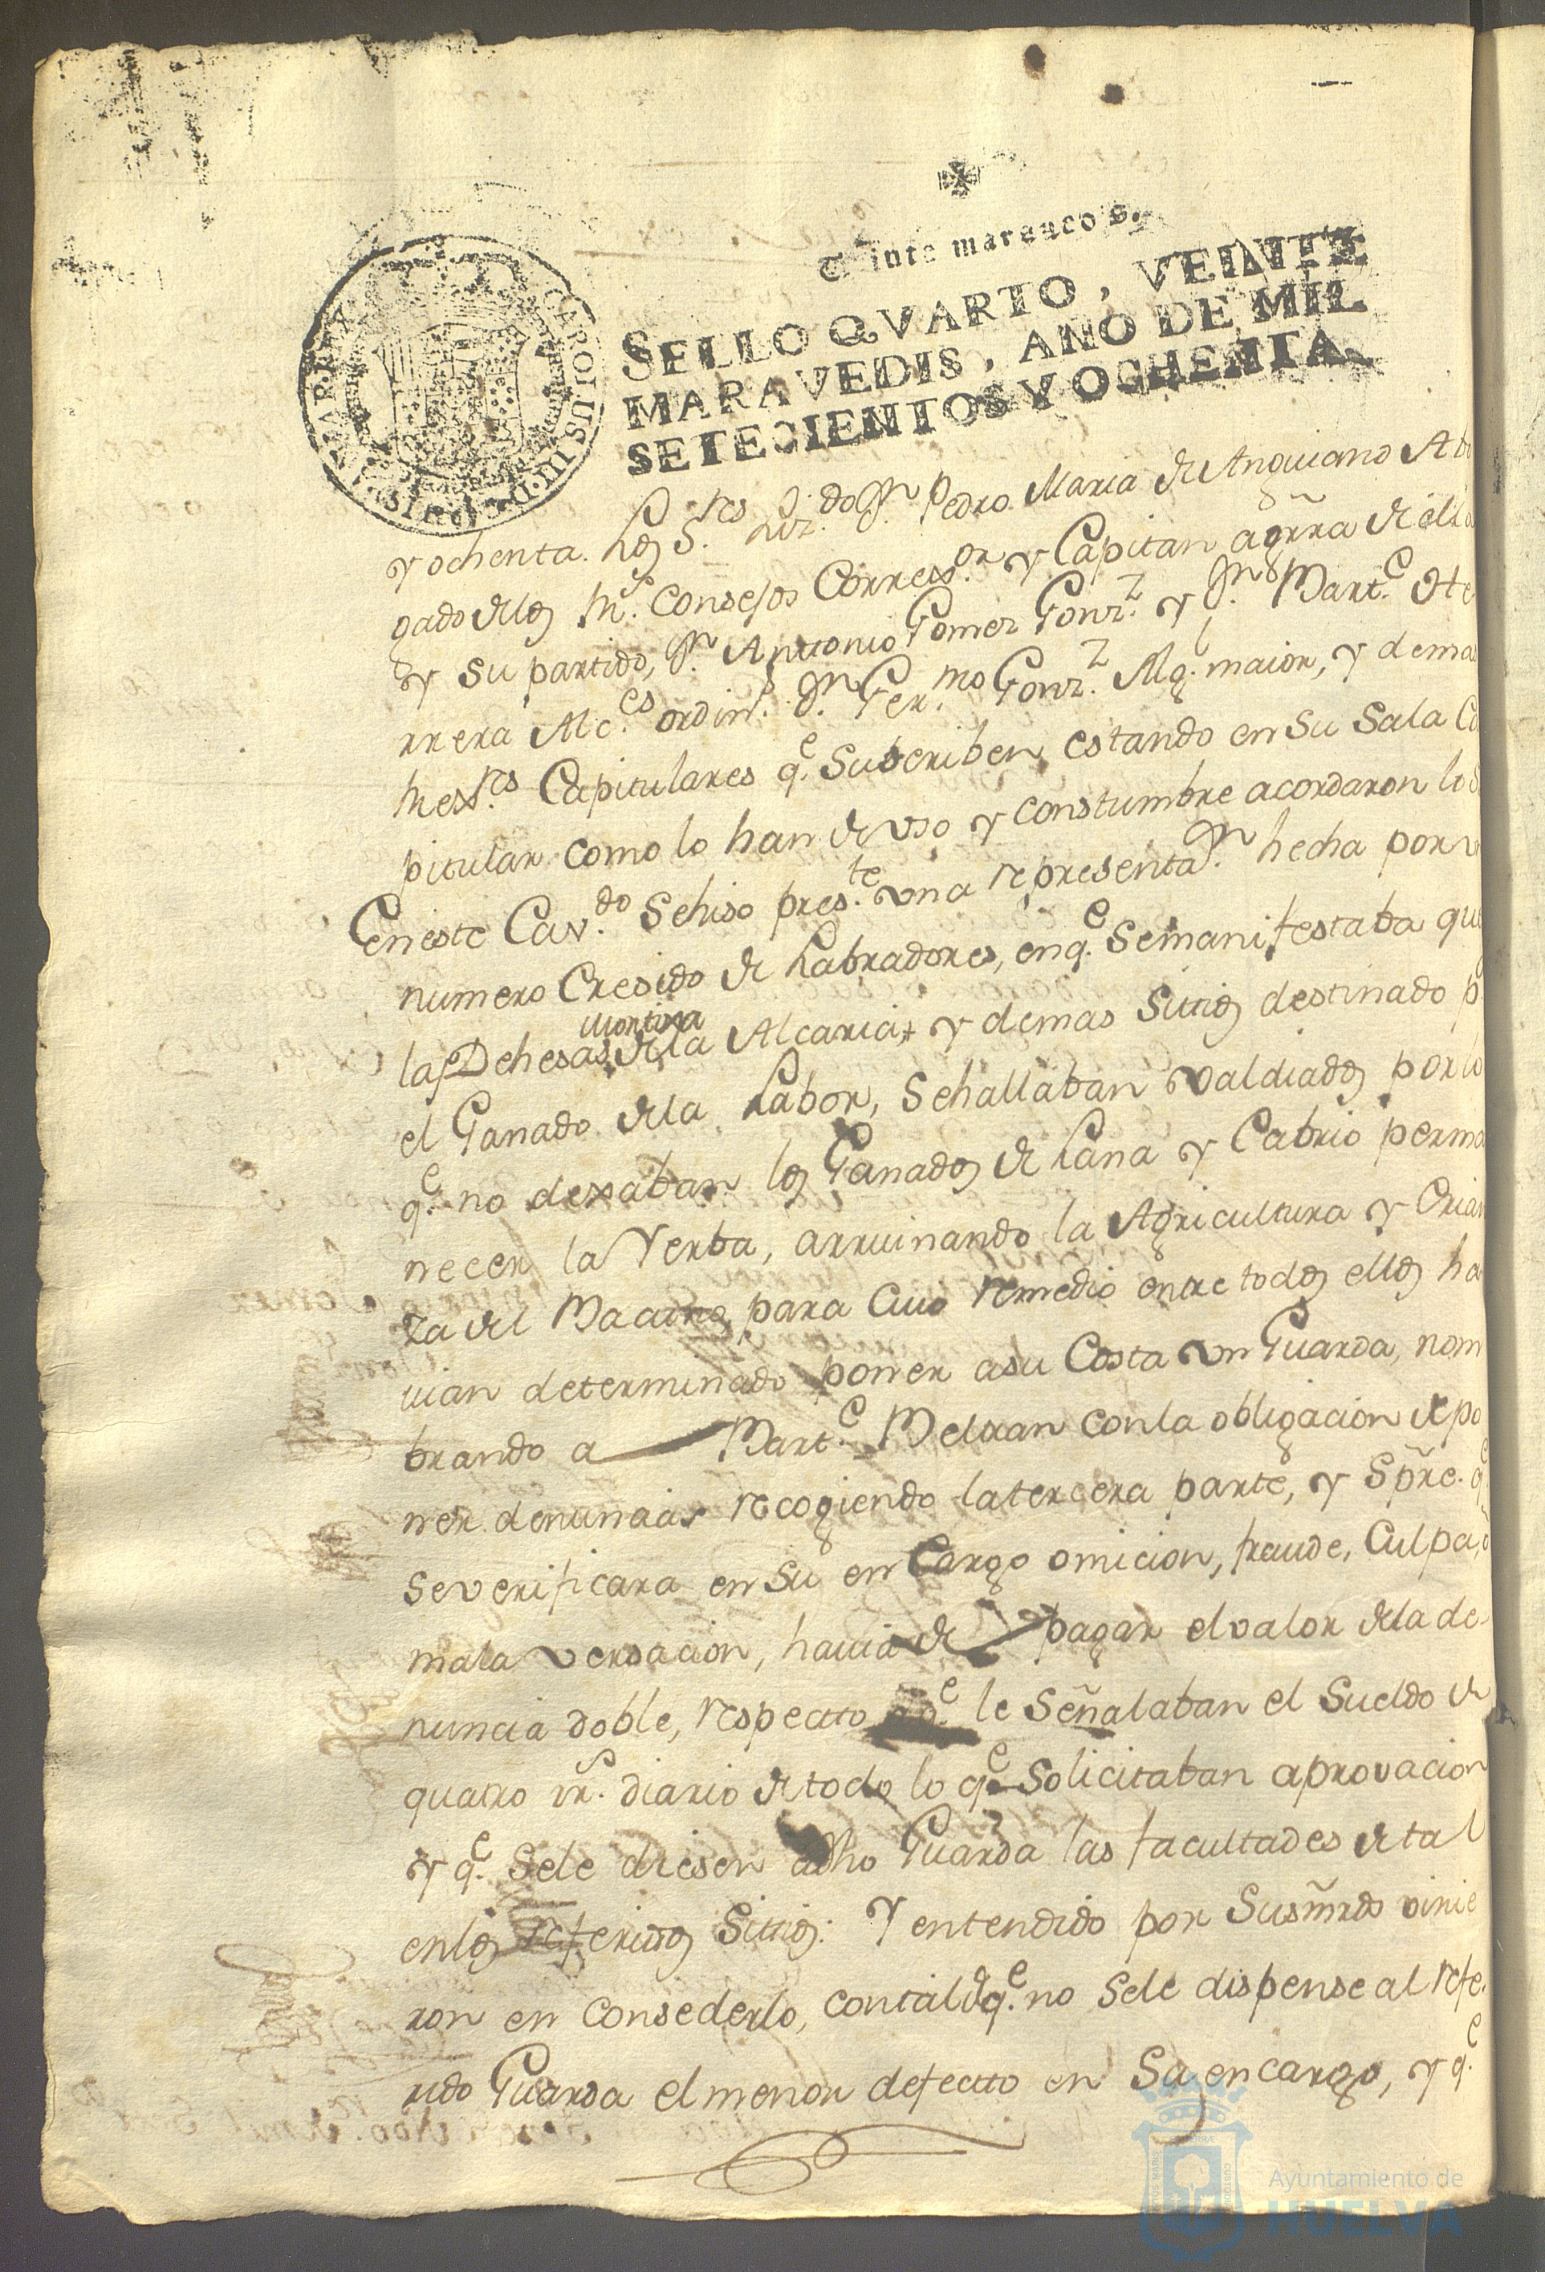 CAROLUS III D G HISPANIAR REX
SELLO QVARTO, VEINTE
MARAVEDIS, AÑO DE MIL
SETECIENTOS Y OCHENTA.
y ochenta. Los S.res Liz.do D.n Pedro Maria de Anguiano Abo
gado delos Rs. Consejos Corres.or y Capitan aGrra de esta
y su partido, D.n Antonio Gomez Gonz.z y D.n Mart.e He
rrera Alc.es ordin.s D.n Ger.mo Gonz.z Alg.l maior, y demas
mess.res Capitulares q.e Subscriben, estando en su Sala Ca
pitular como lo han de uso y constumbre acordaron lo sig
En este Cav.do Sehiso pres.te una representa.on hecha por un
numero Cresido de Labradores, enq.e Semanifestaba que
montina
las Dehesas dela Alcaria, y demas Sitios destinado p.
el Ganado dela Labor, Sehallaban valdiados por lo
q.e no dexaban los Ganados de Lana y Cabrio perma
necer la Yerba, arruinando la Agricultura y Crian
za del Bacuno, para Cuio remedio entre todos ellos ha
vian determinado poner asu Costa un Guarda, nom
brando a Mart.e Beltran conla obligacion de po
ner denuncias recogiendo latercera parte, y Spre. q.e
severificara en su en Cargo omicion, fraude, Culpa, o
mala versacion, havia de pagar elvalor dela de-
nuncia doble, respecto a q.e le Señalaban el Sueldo de
quatro rs. diario de todo lo q.e Solicitaban aprovacion
y q.e Sele diesen adho Guarda las facultades de tal
enlos referidos Sitios: Y entendido por Susmrds vinie
ron en Consederlo, contal q.e no Sele dispense al refe-
rido Guarda elmenor defecto en Su encargo, y q.e
Ayuntamiento de
HUELVA